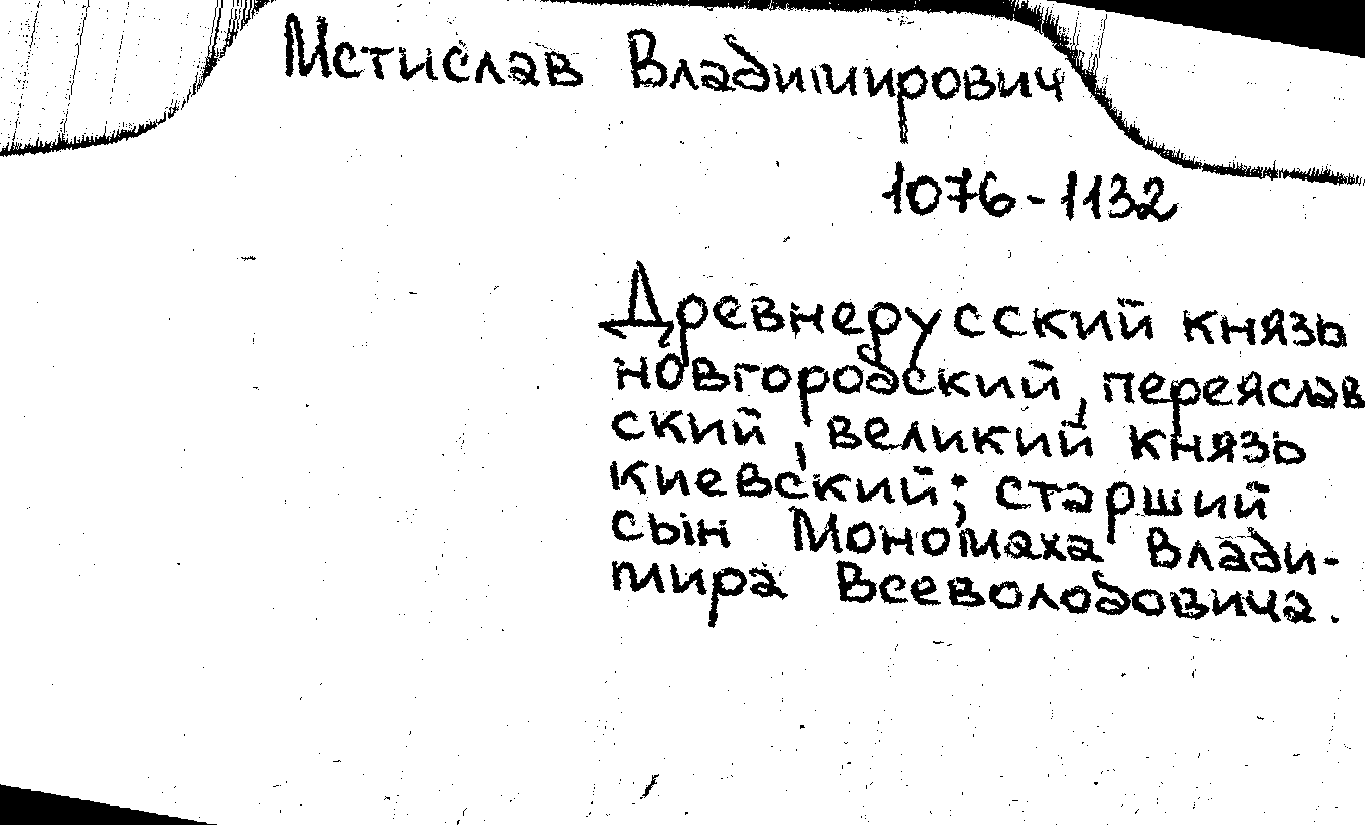 Мстислав Владимирович
1076-1132
Древнерусский князь
новгородский, переяслав
ский, великий князь
киевский; старший
сын Мономаха Влади-
мира Всеволодовича.